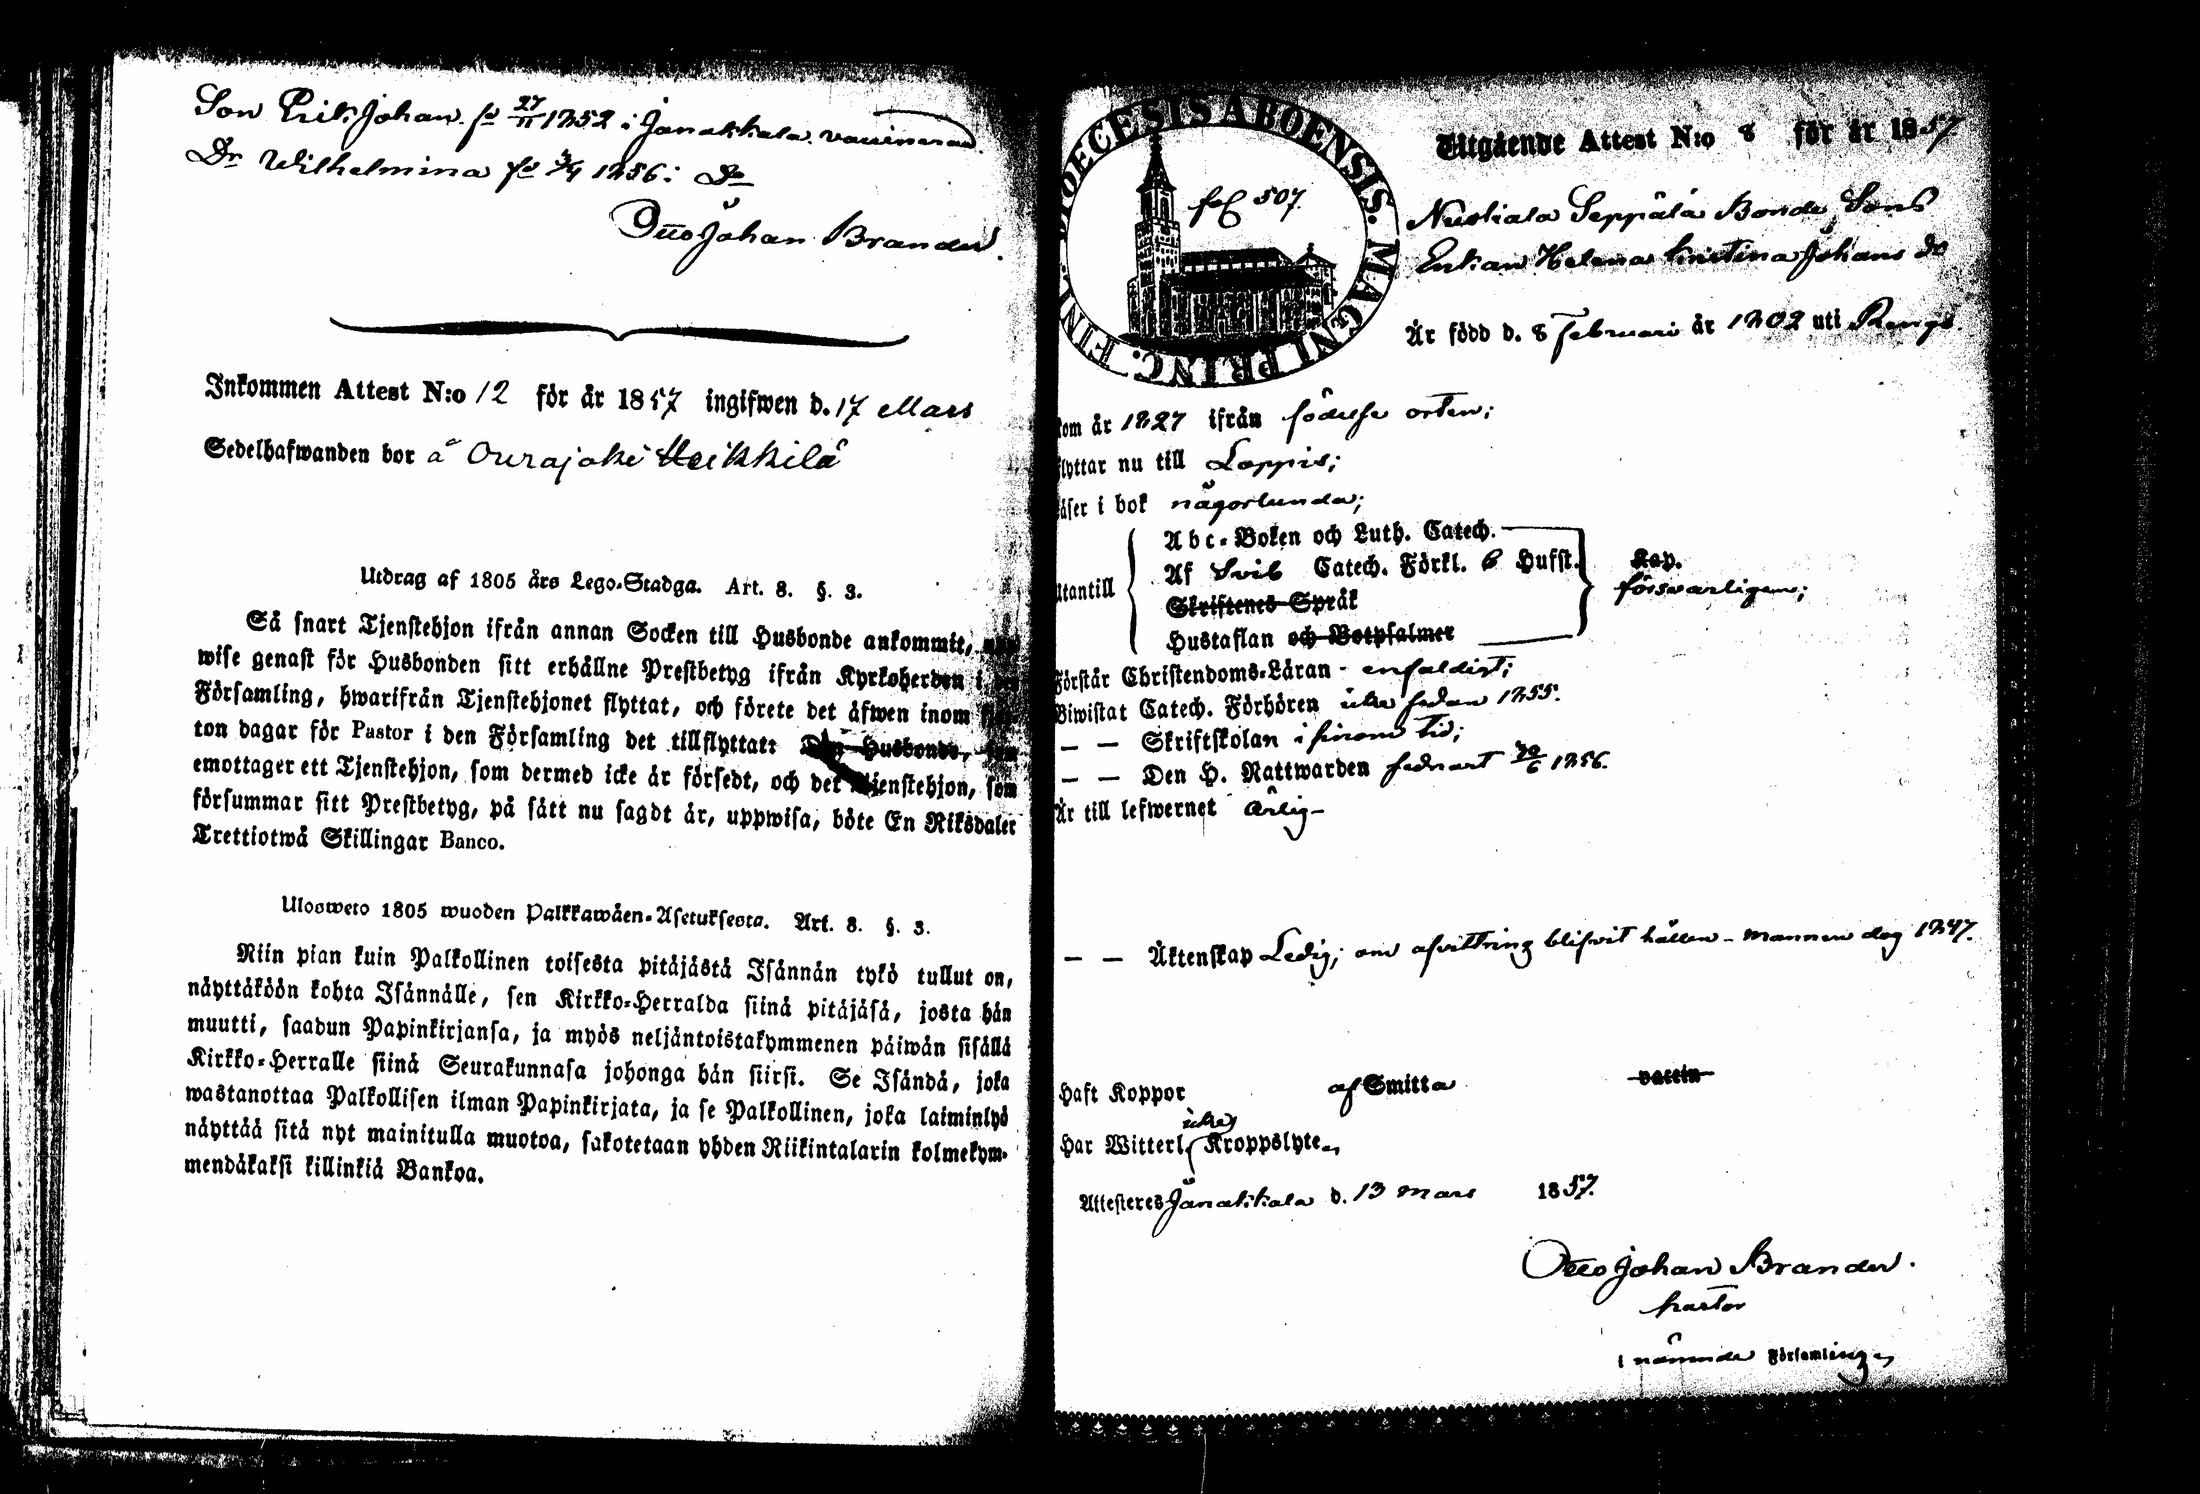 Son Erik Johan fd 27/11 1852 i Janakkala. vaccinerad.
Dr Wilhelmina fd 1856: Do
Otto Johan Brander.
Inkommen Attest N:o 12 för år 1857 ingifwen d. 17 Mars
Sedelhafwanden bor å Ourajoki Heikkilä
Utdrag af 1805 års Lego-Stadga. Art. 8. §. 3.
Så snart Tjenstehjon ifrån annan Socken till Husbonde ankommit,
wise genast för Husbonden sitt erhållne Prestbetyg ifrån Kyrkoherden i den
Församling, hwarifrån Tjenstehjonet flyttat, och förete det äfwen inom
ton dagar för Pastor i den Församling det tillflyttat: Den Husbonde, som
emottager ett Tjenstehjon, som dermed icke är försedt, och det Tjenstehjon, som
försummar sitt Prestbetyg, på sätt nu sagdt är, uppwisa, böte En Riksdaler
Trettiotwå Skillingar Banco.
Ulosweto 1805 wuoden Palkkawäen-Asetuksesta. Art. 8. §. 3.
Niin pian kuin Palkollinen toisesta pitäjästä Isännän tykö tullut on,
näyttäköön kohta Isännälle, sen Kirkko-Herralda siinä pitäjäsä, josta hän
muutti, saadun Papinkirjansa, ja myös neljäntoistakymmenen päiwän sisällä
Kirkko-Herralle siinä Seurakunnasa johonga hän siirsi. Se Isändä, joka
wastanottaa Palkollisen ilman Papinkirjata, ja se Palkollinen, joka laiminlyö
näyttää sitä nyt mainitulla muotoa, sakotetaan yhden Riikintalarin kolmekym-
mendäkaksi killinkiä Bankoa.
DIOECESIS ABOENSIS. MAGNI PRINC. FINL.
fol 507.
Utgående Attest N:o 8 för år 1857
Seppälä Bonde Sons
Enkan Helena Kristina Johans dr
Är född d. 8 Februari år 1802 uti Rengo.
kom år 1827 ifrån födelse orten;
flyttar nu till Loppis;
läser i bok någorlunda;
Utantill
Abc-Boken och Luth. Catech.
Af Svib Catech. Förkl. 6 Hufst. Kap.
försvarligen;
Skriftenes Språk
Hustaflan och Botpsalmer
Förstår Christendoms-Läran - enfaldigt;
Biwistat Catech. Förhören icke sedan 1855.
— — Skriftskolan i sinom tid;
— — Den H. Nattwarden sednast 1856.
Är till lefwernet ärlig -
— — Äktenskap Ledig; om afvittring blifvit hållen - mannen dog 1847.
Haft Koppor af Smitta vaccin
icke
Har Witterl. Kroppslyte
Attesteres Janakkala d. 13 Mars 1857.
Otto Johan Brander.
Pastor
i nämnde Församling